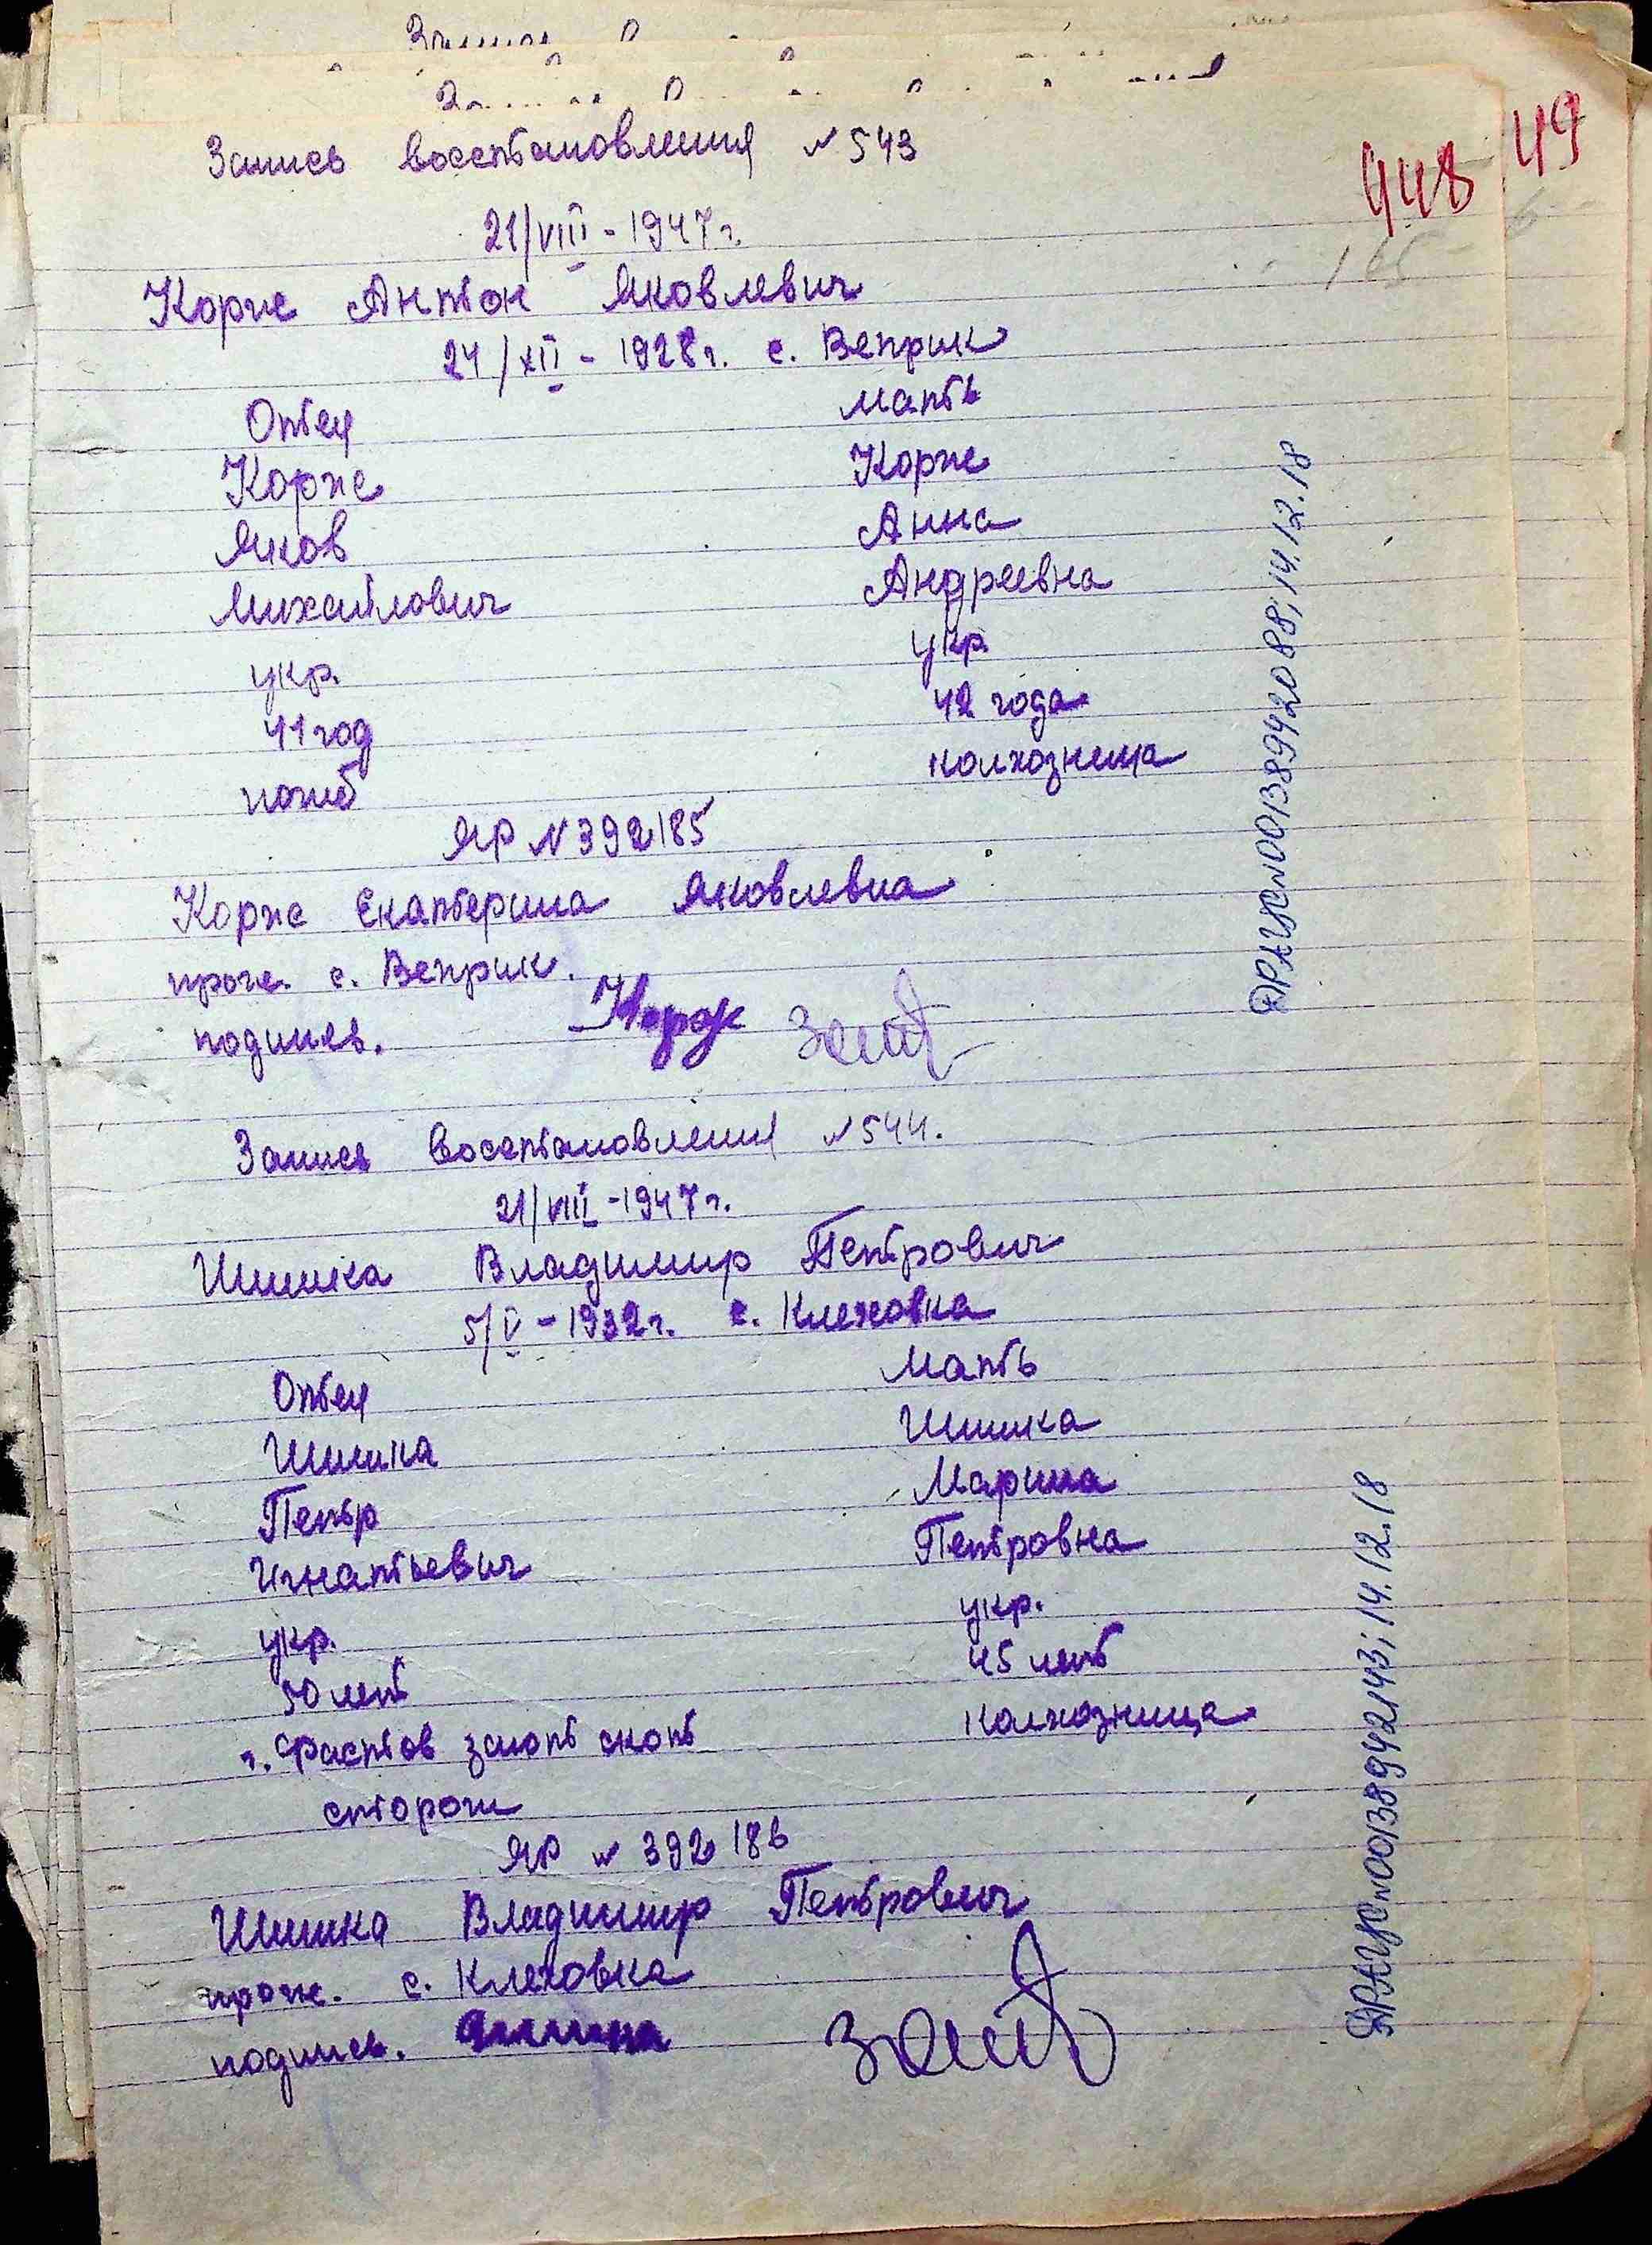 448 49
Запись восстановления № 543
21/VIII - 1947 г.
Корж Антон Яковлевич
24/XII - 1928 г. с. Веприк
Отец Мать
Корж Корж
Яков Анна
Михайлович Андреевна
укр. укр.
41 год 42 года
погиб колхозница
ЯР № 392185
Корж Екатерина Яковлевна
прож. с. Веприк.
подпись. Корж
ДРАЦС №00138942088; 14.12.18
Запись восстановления № 544.
21/VIII - 1947 г.
Шишка Владимир Петрович
5/V - 1932 г. с. Клеховка
Отец Мать
Шишка Шишка
Петр Марина
Игнатьевич Петровна
укр. укр.
50 лет 45 лет
г. Фастов загот скот колхозница
сторож
ЯР № 392186
Шишка Владимир Петрович
прож. с. Клеховка
подпись. Шишка
ДРАЦС №00138942143; 14.12.18